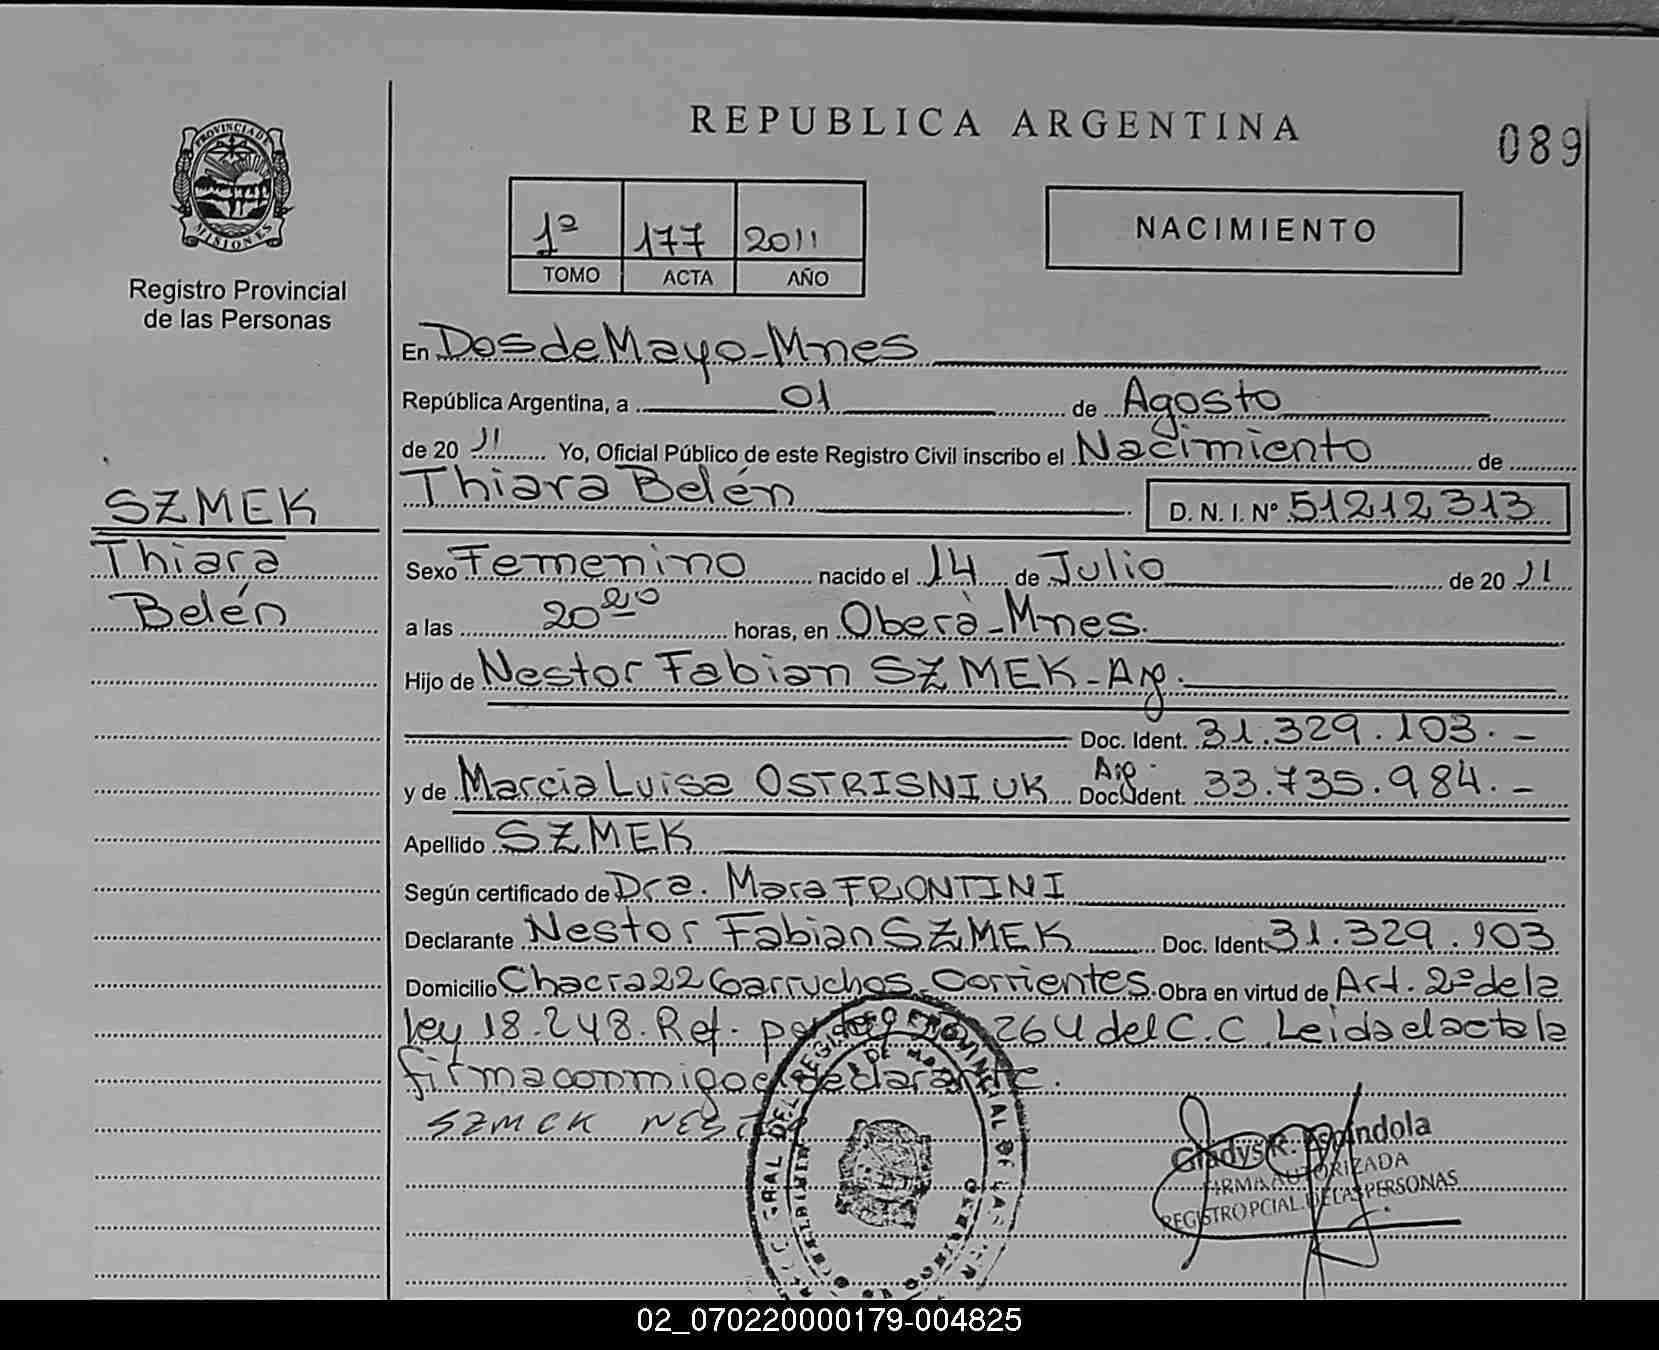 REPUBLICA ARGENTINA
089
PROVINCIA DE
MISIONES
Registro Provincial
de las Personas
1º 177 2011
TOMO ACTA AÑO
NACIMIENTO
En Dos de Mayo - Mnes
República Argentina, a 01 de Agosto
de 20 11 Yo, Oficial Público de este Registro Civil inscribo el Nacimiento de
Thiara Belén D. N. I. Nº 51212313
SZMEK
Thiara
Belén
Sexo Femenino nacido el 14 de Julio de 20 11
a las 20 20 horas, en Oberà - Mnes.
Hijo de Nestor Fabian SZMEK - Arg.
Doc. Ident. 31.329.103.-
y de Marcia Luisa OSTRISNIUK Arg. Doc. Ident. 33.735.984.-
Apellido SZMEK
Según certificado de Dra. Mara FRONTINI
Declarante Nestor Fabian SZMEK Doc. Ident. 31.329.103
Domicilio Chacra 22 Garruchos - Corrientes. Obra en virtud de Art. 2º de la
ley 18.248. Ref. por ley 264 del C.C. Leida el acta la
firma conmigo el declarante.
SZMEK NEST
Gladys R. Espindola
FIRMA AUTORIZADA
REGISTRO PCIAL. DE LAS PERSONAS
02_070220000179-004825